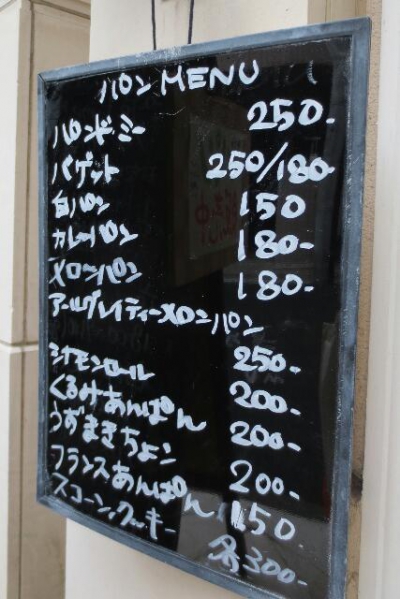 パン MENU
パンドミー 250-
バゲット 250/180-
白パン 150
カレーパン 180-
メローパン 180-
アールグレイティーメロンパン
シナモンロール 250-
くるみあんぱん 200-
うずまきちょコ 200-
フランスあんぱん 200-
スコーン,クッキー 150
各300-